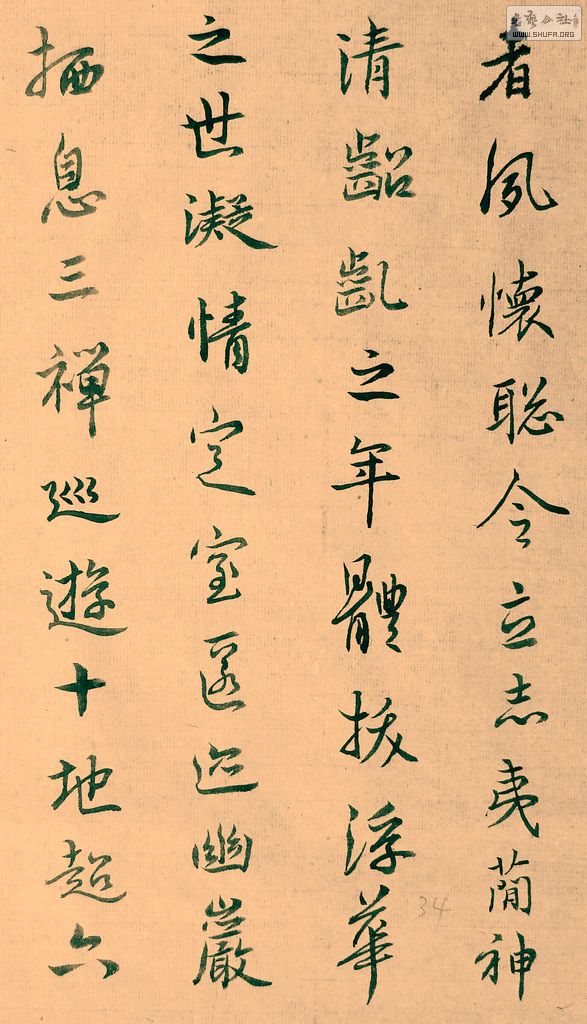 者夙懷聡令立志夷蕳神
清齠齔之年體拔浮華
之世凝情定室匿迹幽巖
栖息三禪巡遊十地超六
34
WWW.SHUFA.ORG